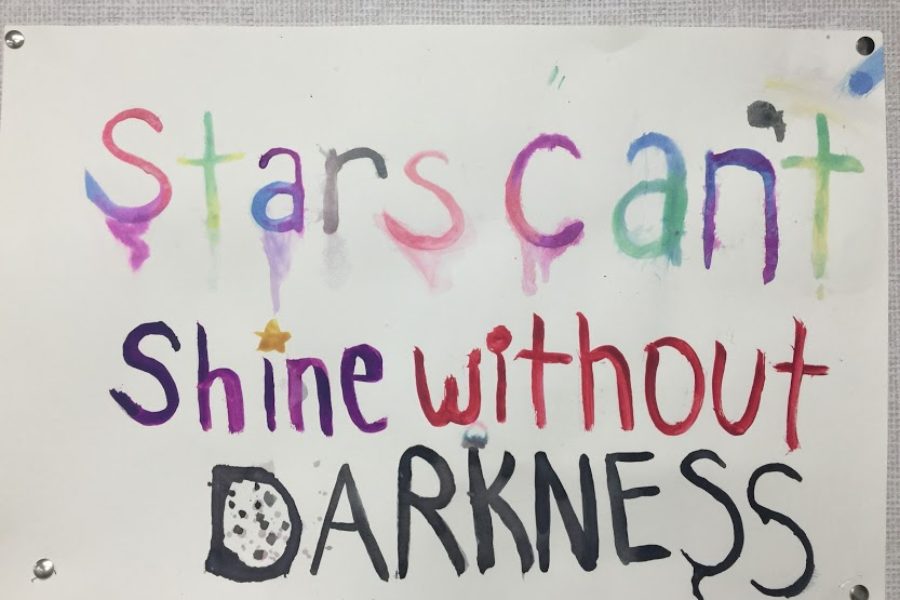 Stars can't
Shine without
DARKNESS